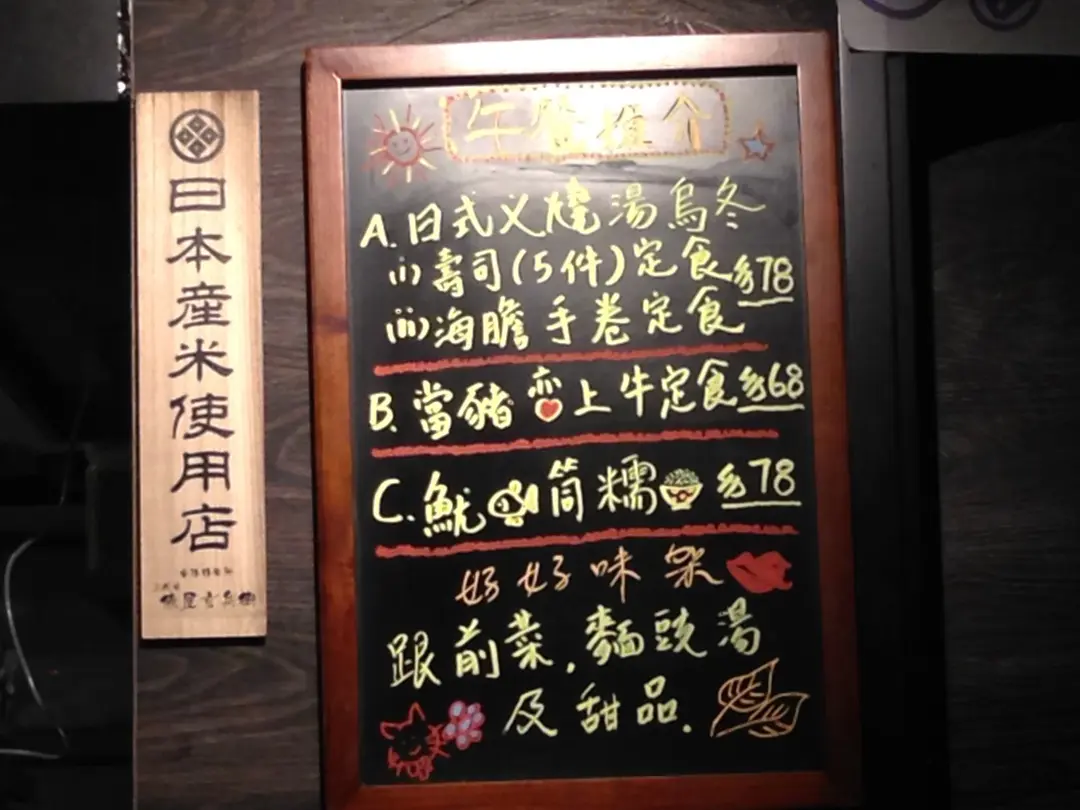 日本産米使用店
午餐推介
A. 日式义燒湯烏冬
(i) 壽司(5件)定食 $78
(iii) 海膽手卷定食
B. 當豬上牛定食 $68
C. 魷筒糯 $78
好好味架
跟前菜,麵豉湯
及甜品.